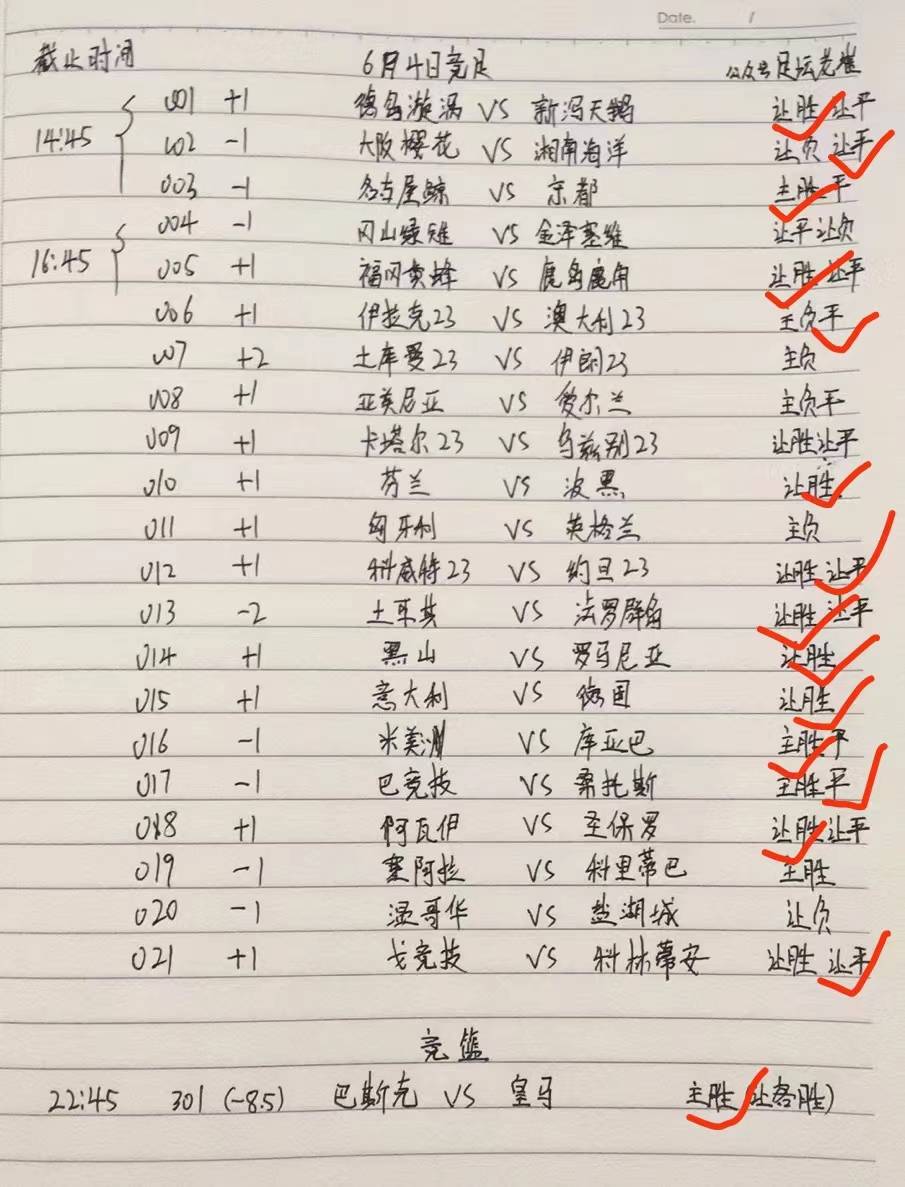 Date. /
截止时间 6月4日竞足 公众号足坛老崔
001 +1 德岛漩涡 VS 新泻天鹅 让胜 让平
14:45 002 -1 大阪樱花 VS 湘南海洋 让负 让平
003 -1 名古屋鲸 VS 京都 主胜平
004 -1 冈山绿雉 VS 金泽塞维 让平让负
16:45 005 +1 福冈黄蜂 VS 鹿岛鹿角 让胜 让平
006 +1 伊拉克23 VS 澳大利23 主负平
007 +2 土库曼23 VS 伊朗23 主负
008 +1 亚美尼亚 VS 爱尔兰 主负平
009 +1 卡塔尔23 VS 乌兹别23 让胜让平
010 +1 芬兰 VS 波黑 让胜
011 +1 匈牙利 VS 英格兰 主负
012 +1 科威特23 VS 约旦23 让胜 让平
013 -2 土耳其 VS 法罗群岛 让胜 让平
014 +1 黑山 VS 罗马尼亚 让胜
015 +1 意大利 VS 德国 让胜
016 -1 米美洲 VS 库亚巴 主胜平
017 -1 巴竞技 VS 桑托斯 主胜平
018 +1 阿瓦伊 VS 圣保罗 让胜让平
019 -1 塞阿拉 VS 科里蒂巴 主胜
020 -1 温哥华 VS 盐湖城 让负
021 +1 戈竞技 VS 科林蒂安 让胜 让平
竞篮
22:45 301 (-8.5) 巴斯克 VS 皇马 主胜(让客胜)